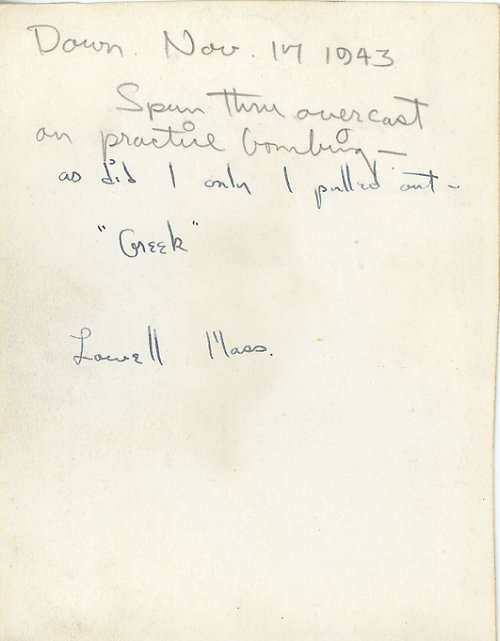 Down. Nov. 17 1943
Spun thru overcast
on practice bombing -
as did I only I pulled out -
"Greek"
Lowell Mass.